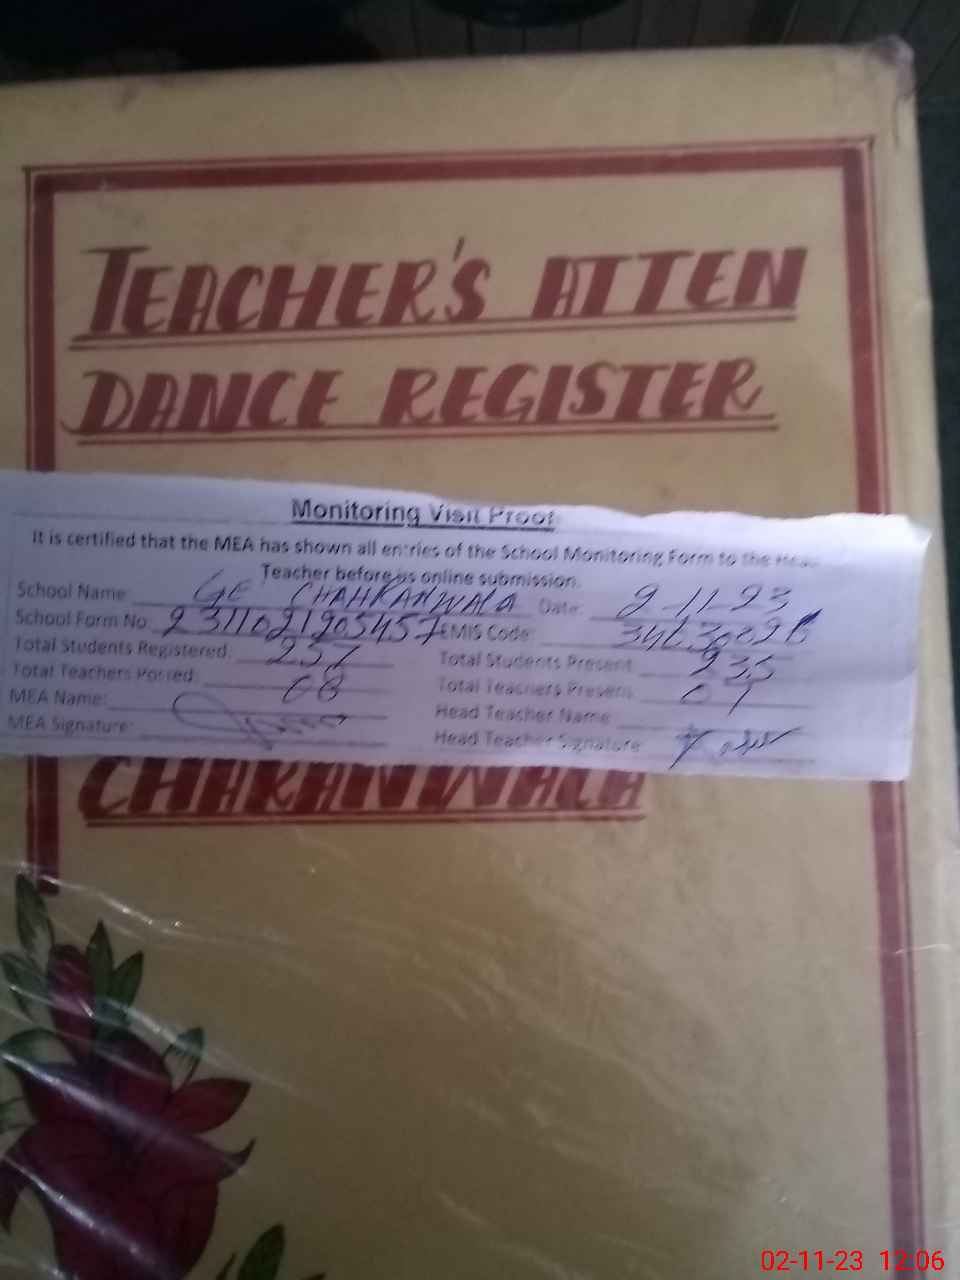 TEACHER'S ATTEN
DANCE REGISTER
Monitoring Visit Proof
It is certified that the MEA has shown all entries of the School Monitoring Form to the Head
Teacher before its online submission.
School Name: GE CHAHKANWALA Date: 2-11-23
School Form No: 2311021905457 EMIS Code:
Total Students Registered: 257 Total Students Present: 235
Total Teachers Posted: 08 Total Teachers Present: 07
MEA Name: Head Teacher Name
MEA Signature: Head Teacher Signature:
CHAKANWALA
02-11-23 12:06